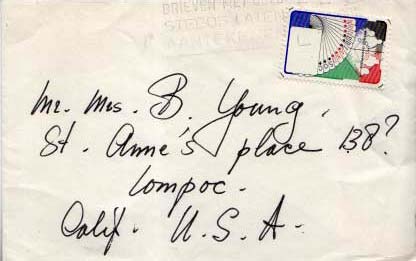 BRIEVEN MET
STEEDS LATEN
AANTEKENEN
Mr. Mrs. B. Young.
St. Anne's place 138?
Lompoc.
Calif. U.S.A.